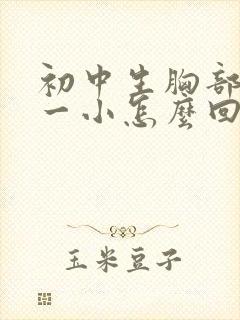 初中生胸部
一小怎麼回
玉米豆子